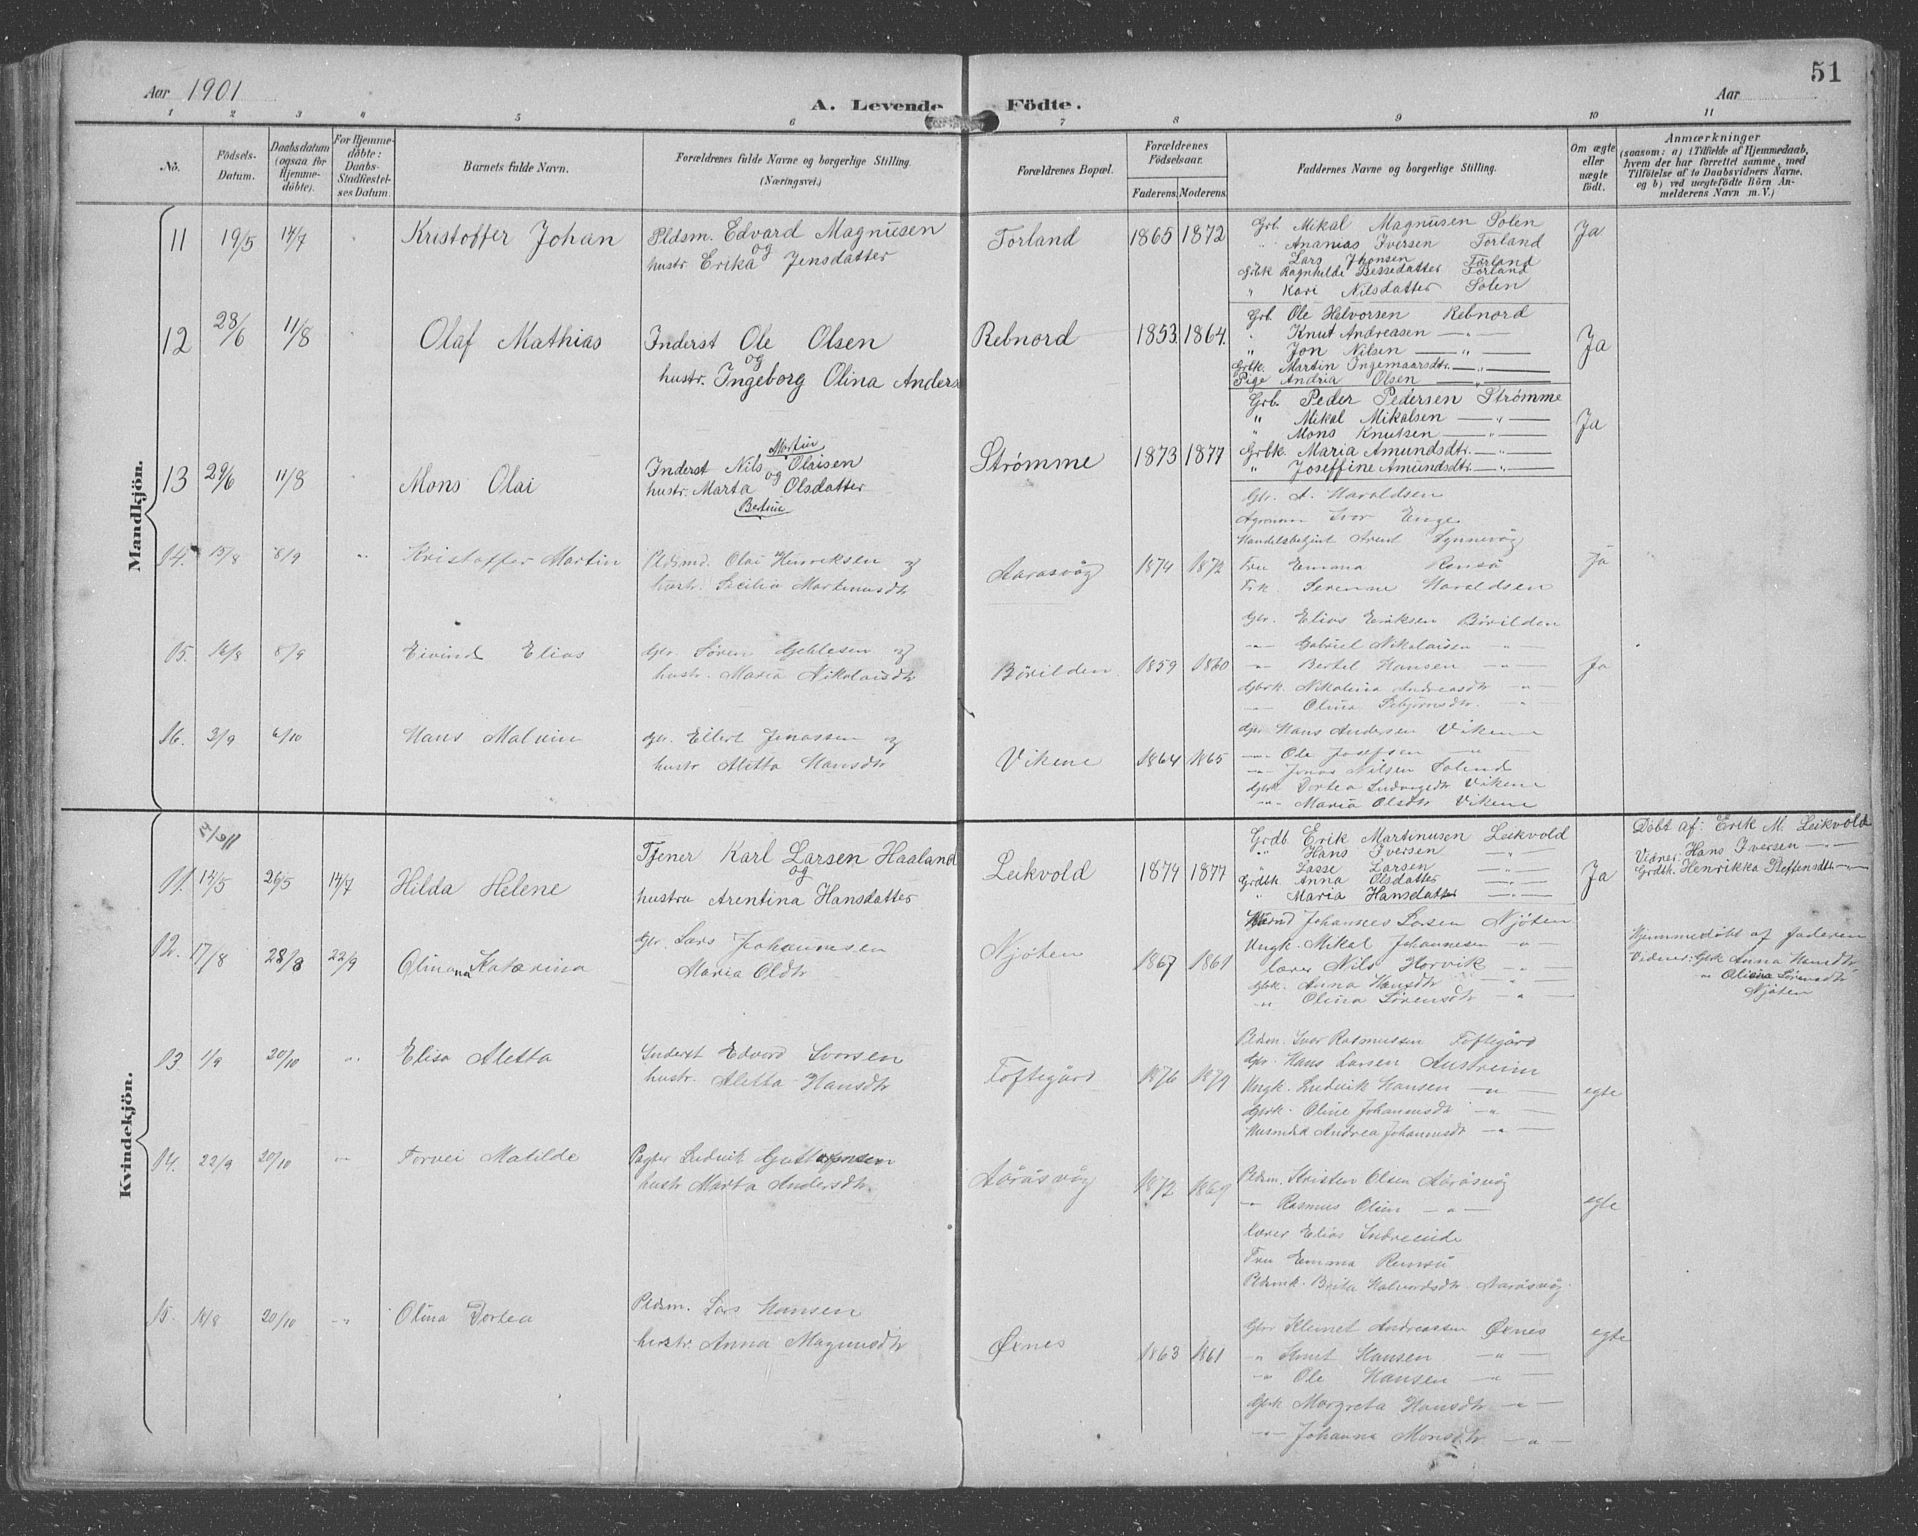 51
Aar 1901
A. Levende Födte.
Aar
1 2 3 4 5 6 7 8 9 10 11
No.
Födsels-Datum.
Daabsdatum (ogsaa for Hjemme-döbte).
For Hjemme-döbte: Daabs-Stadfæstelses Datum.
Barnets fulde Navn.
Forældrenes fulde Navne og borgerlige Stilling. (Næringsvei.)
Forældrenes Bopæl.
Forældrenes Födselsaar.
Faderens. Moderens.
Faddernes Navne og borgerlige Stilling.
Om ægte eller uægte födt.
Anmærkninger
(saasom: a) i Tilfælde af Hjemmedaab, hvem der har forrettet samme, med Tilföielse af to Daabsvidners Navne, og b) ved uægtefödte Börn Anmelderens Navn m. V.)
Mandkjön.
11 19/5 14/7 Kristoffer Johan
Pldsm. Edvard Magnusen
og
hustr Erika Jensdatter
Torland 1865 1872
Grb. Mikal Magnusen Solen
" Ananias Iversen Torland
Lars Jhonsen Torland
Grbk Ragnhilde Bessedatter Torland
" Kari Nilsdatter Solen
Ja
12 28/6 11/8 Olaf Mathias
Inderst Ole Olsen
og
hustr. Ingeborg Olina Anders
Rebnord 1853. 1864.
Grb. Ole Helvorsen Rebnord
Knut Andreasen — " —
" Jon Nilsen — " —
Grbk. Martin Ingemaarsdtr. — " —
Pige Andria Olsen — " —
Ja
13 29/6 11/8 Mons Olai
Martin
Inderst Nils Olaisen
og
hustr. Marta Olsdatter
Bertine
Strømme 1873 1877
Grb. Peder Pedersen Strømme
" Mikal Mikalsen — " —
" Mons Knutsen — " —
Grbk. Maria Amundsdtr. — " —
" Joseffine Amundsdtr. — " —
Ja
14. 15/8 8/9 " Kristoffer Martin
Pldsmd. Olai Henriksen og
hustr. Secilia Martinusdtr
Aarasvåg 1874 1872
Gbr. A. Haraldsen
Agronom Ivor Enge
Handelsbetjent Arent Synnevåg
Fru Emma Renså
Frk. Serenne Haraldsen
Ja
15. 16/8 8/9 Eivind Elias
Gbr Søren Gehlesen og
hustr. Maria Nikolaisdtr
Börilden 1859 1860
Gbr. Elias Eriksen Börilden
—"— Gabriel Nikolaisen —"—
—"— Bertel Hansen —"—
Gbrk. Nikolina Andreasdtr —"—
Ja
16. 3/9 6/10 Hans Malvin
Gbr. Eilert Jonassen og
hustr Aletta Hansdtr
Vikene 1864 1865
Gbr Hans Andersen Vikene
—"— Ole Josefsen —"—
—"— Jonas Nilsen Solend
Gbrk Dortea Ludvigsdtr Vikene
—"— Maria Olsdtr Vikene
Kvindekjön.
11. 14/5 26/5 14/7 Hilda Helene
Tjener Karl Larsen Haaland
og
hustru Arentina Hansdatter
Leikvold 1874 1877
Grdb. Erik Martinusen Leikvold
" Hans Iversen — " —
Lasse Larsen — " —
Grdbk Anna Olsdatter — " —
" Maria Hansdatter — " —
Ja
Döbt af: Erik M. Leikvold
Vidner: Hans Iversen — " —
Grdbk. Henrikka Steffensdtr — " —
12. 17/8 28/8 22/9 Olinana Katarina
Gbr. Lars Johannesen
Maria Oldtr
Njöten 1867 1861
Johannes Larsen Njöten
Ungk. Mikal Johannesen —"—
lærer Nils Horvik —"—
Gbrk. Anna Hansdtr —"—
" Olina Sørensdtr —"—
Hjemmedöbt af faderen
Vidner: Gbk Anna Hansdtr
" Olina Sörensdtr
Njöten
13. 1/9 20/10 " Elisa Aletta
Inderst Edvard Ivorsen
hustr. Aletta Hansdtr
Toftegård 1876 1879
Pldsm. Ivor Rasmussen Toftegård
Gbr. Hans Larsen Austreim
Ungk. Ludvik Hansen —"—
Gbrk. Oline Johannesdtr —"—
Husmdsk Andrea Johannesdtr —"—
egte
14. 22/9 20/10 " Torvei Matilde
Pagter Ludvik Guttormsen
hustr Marta Andersdtr.
Aaråsvåg 1872 1869
Pldsm. Kristen Olsen Aaråsvåg
—"— Rasmus Olsen —"—
Lærer Elias Indreeide
Fru Emma Renså
Pldsmk. Brita Halvordsdtr. Aaråsvåg.
egte
15. 18/8 20/10 " Olina Dortea
Pldsm. Lars Hansen
hustr. Anna Magnusdtr
Øxnes 1863 1861
Gbr Klemet Andreassen Øxnes
" Knut Hansen —"—
—"— Ole Hansen —"—
Gbrk Margreta Hansdtr —"—
—"— Johanna Monsdtr —"—
egte